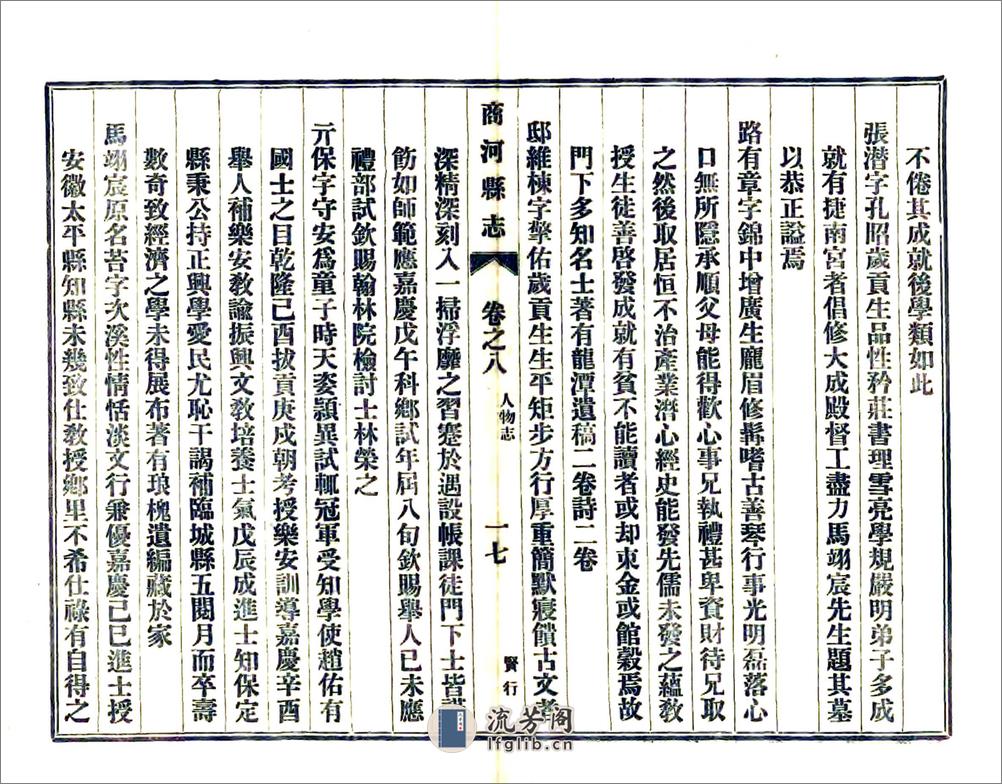 不倦其成就後學類如此
張潛字孔昭歲貢生品性矜莊書理雪亮學規嚴明弟子多成
就有捷南宮者倡修大成殿督工盡力馬翊宸先生題其墓
以恭正謚焉
路有章字錦中增廣生龐眉修髯嗜古善琴行事光明磊落心
口無所隱承順父母能得歡心事兄執禮甚卑資財待兄取
之然後取居恒不治產業潛心經史能發先儒未發之蘊敎
授生徒善啓發成就有貧不能讀者或却束金或館穀焉故
門下多知名士著有龍潭遺稿二卷詩二卷
邸維棟字擎佑歲貢生生平矩步方行厚重簡默寢饋古文者
深精深刻入一掃浮靡之習蹇於遇設帳課徒門下士皆謹
飭如師範應嘉慶戊午科鄉試年屆八旬欽賜舉人已未應
禮部試欽賜翰林院檢討士林榮之
亓保字守安爲童子時天姿穎異試輒冠軍受知學使趙佑有
國士之目乾隆己酉拔貢庚戌朝考授樂安訓導嘉慶辛酉
舉人補樂安敎諭振興文敎培養士氣戊辰成進士知保定
縣秉公持正興學愛民尤恥干謁補臨城縣五閱月而卒壽
數奇致經濟之學未得展布著有琅槐遺編藏於家
馬翊宸原名苔字次溪性情恬淡文行兼優嘉慶己巳進士授
安徽太平縣知縣未幾致仕敎授鄉里不希仕祿有自得之
商河縣志
卷之八
人物志
一七
賢行
流芳閣
lfglib.cn